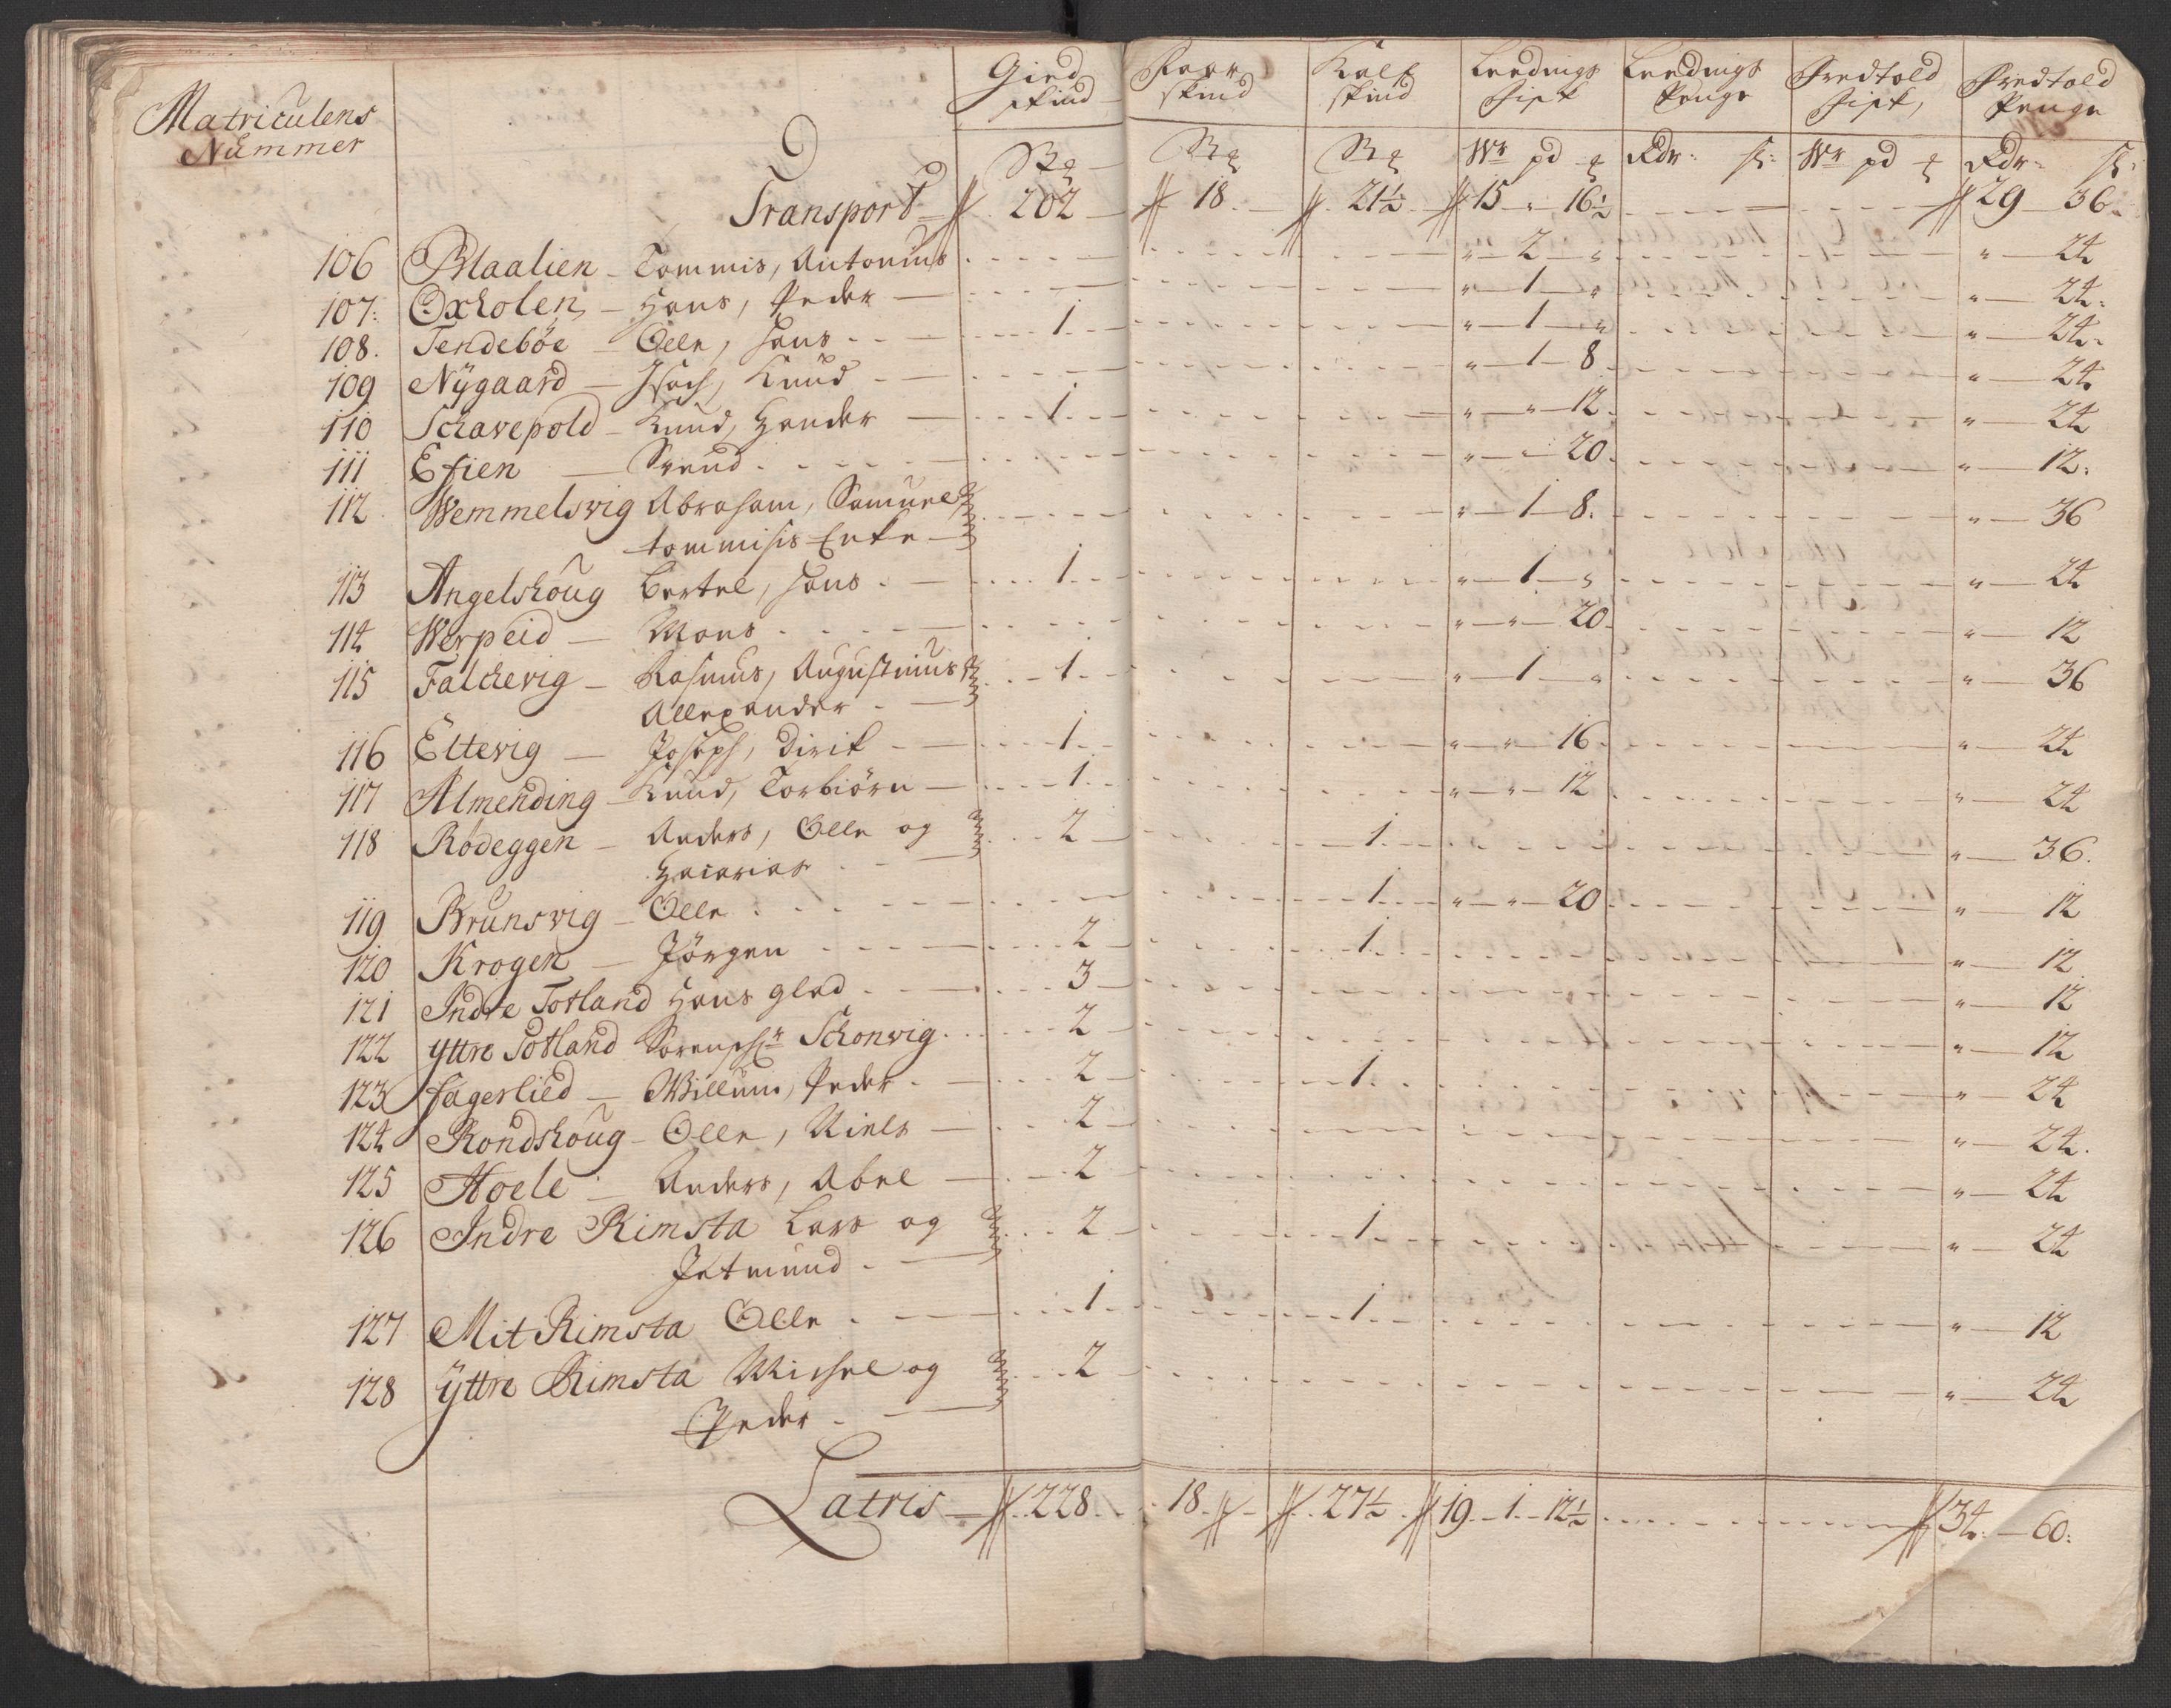 Matriculens Nummer | Gied skind | Faar skind | Kalf skind | Leedings fisk | Leedings Penge | Fredtold fisk, | Fredtold Penge
Wr pd | Rdr: s: | Wr pd | Rdr: s:
Transport 202 18 21½ 15 " 16½ 29 36
106 Blaalien Tommis, Antonius " 2 " " 24
107: Oxholen Hans, Peder " 1 " " 24:
108. Tendebôe Olle, Hans 1 " 1 " " 24
109 Nÿgaard Isach, Knud " 1 8 " 24
110 Schavepold Knud, Hender 1 " " 12 " 24
111 Efien Svend " " 20 " 12:
112 Wemmelsvig Abraham, Samuel " 1 8. " 36
tommisis Enke
113 Angelshoug Bertel, Hans 1 " 1 " " 24
114 Werpeid Mons " " 20 " 12
115 Falchevig Rasmus, Augustinus 1 " 1 " " 36
Allexander
116 Eltevig Joseph, Dirik 1 " " 16 " 24
117 Almending Knud, Torbiörn 1 " " 12 " 24
118 Rødeggen Anders, Olle og 2 1 " 36.
Hacarias
119 Brunsvig Olle 1 " " 20 " 12
120 Krogen Jörgen 2 1 " 12
121 Indre Totland Hans glad 3 " 12
122 yttre Totland Schonvig 2 " 12
123 fagerlied Willum, Peder 2 1 " 24
124 Rondshoug Olle, Niels 2 " 24.
125 Hoele Anders, Abel 2 " 24
126 Indre Rimsta Lars og 2 1 " 24
Jetmund
127 Mit Rimsta Olle 1 1 " 12
128 ÿttre Rimsta Michel og 2 " 24
Peder
Latris 228 18 27½ 19 1 12½ 34 60: